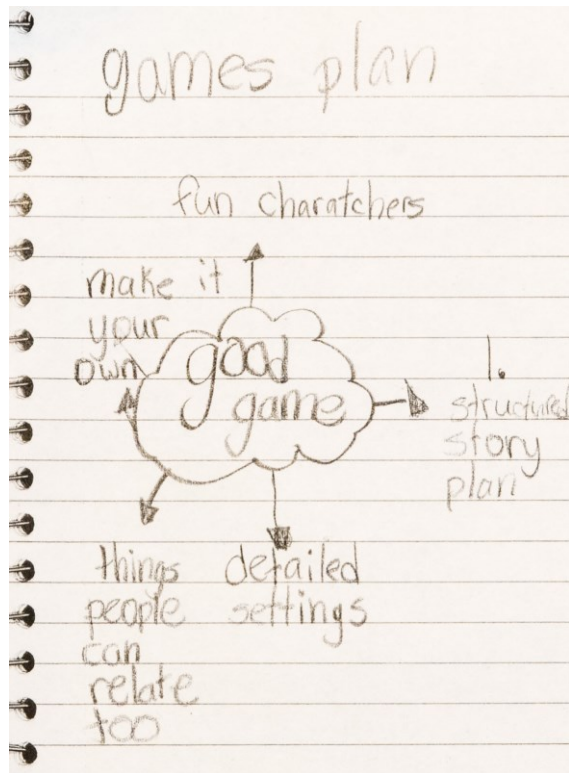 games plan
fun charatchers
make it
your
own
good
game
1.
structured
story
plan
things
people
can
relate
too
detailed
settings